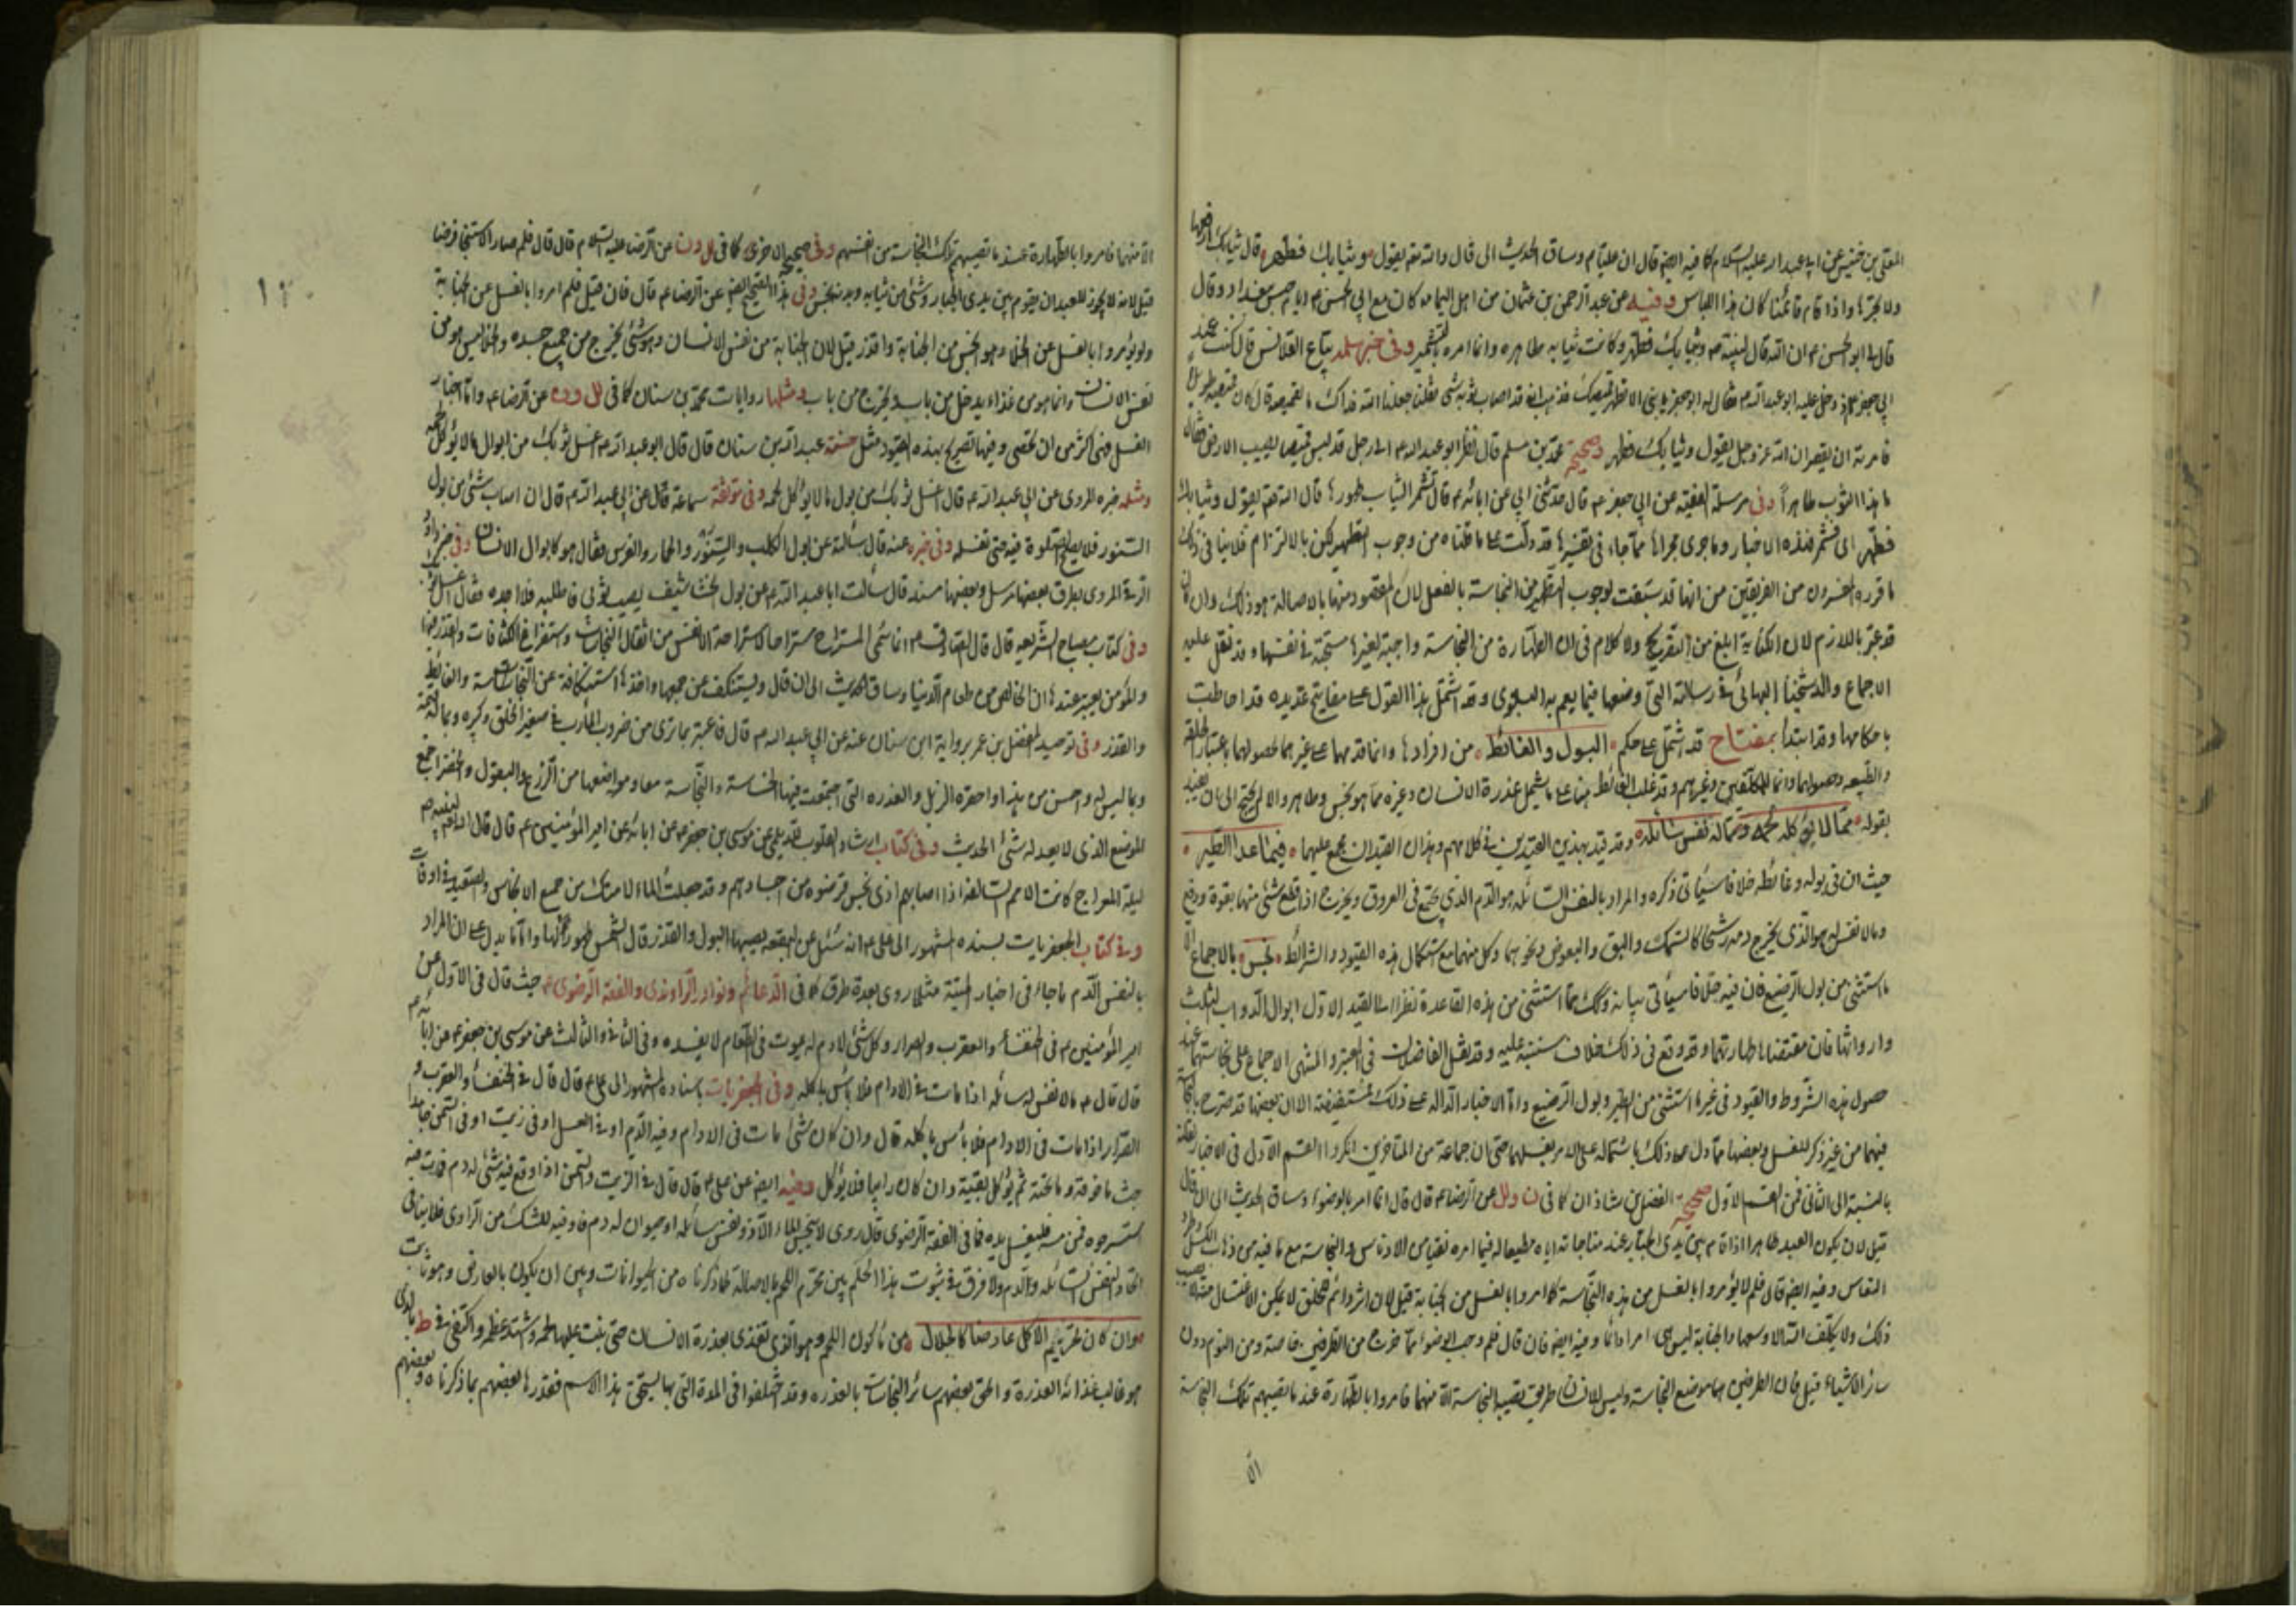 المعلى بن خنيس عن ابي عبد الله عليه السلام كما فيه ايضا قال ان عليا ع وساق الحديث الى قال والله تعالى يقول وثيابك فطهر قال ثيابك ارفعها
ولا تجرها واذا قام قائمنا كان هذا اللباس وفيه عن عبد الرحمن بن عثمان من اهل اليمامة كان مع ابي الحسن ع ايام حبس ببغداد وقال
قال لي ابو الحسن ع ان الله قال لنبيه ص وثيابك فطهر وكانت ثيابه طاهرة وانما امره بالتشمير وفي خبر سلمة بياع القلانس قال كنت عند
ابي جعفر ع اذ دخل عليه ابو عبد الله ع فقال له ابو جعفر يا بني الا تطهر قميصك فذهب فظننا ان ثوبه قد اصابه شيء
فامرته ان يقصر ان الله عز وجل يقول وثيابك فطهر وصحيحة محمد بن مسلم قال نظر ابو عبد الله ع الى رجل قد لبس قميصا يصيب الارض فقال
ما هذا الثوب طاهرا وفي مرسلة الفقيه عن ابي جعفر ع قال حدثني ابي عن ابائه ع قال تشمر الثياب طهور لها قال الله تعالى يقول وثيابك
فطهر اي فشمر فهذه الاخبار وما جرى مجراها مما جاء في تفسيرها قد دلت على ما قلناه من وجوب التطهير لكن بالالتزام فلا ينافي ذلك
ما قرره المفسرون من الفريقين من انها قد سيقت لوجوب التطهير من النجاسة بالفعل لان المقصود منها بالاصالة هو ذلك وان كان
قد عبر باللازم لان الكناية ابلغ من التصريح ولا كلام في ان الطهارة من النجاسة واجبة لغيرها مستحبة في نفسها وقد نقل عليه
الاجماع والد شيخنا البهائي في رسالته التي وضعها فيما يعم به البلوى وقد اشتمل هذا القول على مفاتيح عديدة قد احاطت
باحكامها وقد ابتدأ بمفتاح قد اشتمل على حكم البول والغائط من افرادها وانما قدمهما على غيرهما لحصولهما باعتبار الخلقة
بقوله مما لا يؤكل لحمه ومما له نفس سائلة وقد قيد بهذين القيدين في كلامهم وهذان القيدان مجمع عليهما فيما عدا الطير
حيث ان في بوله وغائطه خلافا سيأتي ذكره والمراد بالنفس السائلة هو الدم الذي يجتمع في العروق ويخرج اذا قطع شيء منها بقوة ودفع
وما لا نفس له هو الذي يخرج دمه رشحا كالسمك والبق والبعوض ونحوهما وكل منهما مع استكمال هذه القيود والشرائط نجس بالاجماع الا
ما استثني من بول الرضيع فان فيه خلافا سيأتي بيانه وكذلك مما استثني من هذه القاعدة نظرا الى القيد الاول ابوال الدواب الثلاث
وارواثها فان مقتضاها طهارتها وقد وقع في ذلك خلاف سننبه عليه وقد نقل الفاضلان في المعتبر والمنتهى الاجماع على نجاستها عند
حصول هذه الشروط والقيود في غير ما استثني من الطير وبول الرضيع واما الاخبار الدالة على ذلك فمستفيضة الا ان بعضها قد صرح
فيهما من غير ذكر للغسل وبعضها مما دل على ذلك باشتماله على الامر بغسلهما حتى ان جماعة من المتاخرين انكروا القسم الاول في الاخبار
بالنسبة الى الثاني فمن القسم الاول صحيحة الفضل بن شاذان كما في ن ولل عن الرضا ع قال قال انما امر بالوضوء وساق الحديث الى ان قال
قيل لان يكون العبد طاهرا اذا قام بين يدي الجبار عند مناجاته اياه مطيعا له فيما امره نقيا من الادناس والنجاسة مع ما فيه من ذهاب الكسل وطرد
النعاس وفيه ايضا قال فلم لا يؤمروا بالغسل من هذه النجاسة كما امروا بالغسل من الجنابة قيل لان هذا شيء دائم غير ممكن للخلق الاغتسال منه
ذلك ولا يكلف الله الا وسعها والجنابة ليس هي امرا دائما وفيه ايضا فان قال فلم وجب الوضوء مما خرج من الطرفين خاصة ومن النوم دون
سائر الاشياء قيل لان الطرفين هما موضع النجاسة وليس للانسان طريق تصيبه النجاسة الا منهما فامروا بالطهارة عند ما تصيبهم تلك النجاسة
الا
١٢٠
الا منهما فامروا بالطهارة عند ما تصيبهم تلك النجاسة من انفسهم وفي صحيحه الاخرى كما في لل ون عن الرضا عليه السلام قال قال فلم صار الاستنجاء فرضا
قيل لانه لا يجوز للعبد ان يقوم بين يدي الجبار وشيء من ثيابه وبدنه نجس وفي هذا الصحيح ايضا عن الرضا ع قال فان قيل فلم امروا بالغسل عن الجنابة
ولم يؤمروا بالغسل عن الخلاء وهو انجس من الجنابة واقذر قيل لان الجنابة من نفس الانسان وهو شيء يخرج من جميع جسده والخلاء ليس هو من
نفس الانسان وانما هو من غذاء يدخل من باب ويخرج من باب ومثلها روايات محمد بن سنان كما في لل ون عن الرضا ع واما اخبار
الغسل فهي اكثر من ان تحصى وفيها تصريح بهذه القيود مثل حسنة عبد الله بن سنان قال قال ابو عبد الله ع اغسل ثوبك من ابوال ما لا يؤكل لحمه
ومثله خبره المروي عن ابي عبد الله ع قال اغسل ثوبك من بول ما لا يؤكل لحمه وفي موثقة سماعة قال عن ابي عبد الله ع قال ان اصاب شيء من بول
السنور فلا يصلح الصلوة فيه حتى تغسله وفي خبره عنه قال سألته عن بول الكلب والسنور والحمار والفرس فقال هو كابوال الانسان وفي خبر داود
الرقي المروي بطرق بعضها مرسل وبعضها مسند قال سألت ابا عبد الله ع عن بول الخشاشيف يصيب ثوبي فاطلبه فلا اجده فقال اغسل ثوبك
وفي كتاب مصباح الشريعة قال قال الصادق ع انما سمي المستراح مستراحا لاستراحة الانفس من اثقال النجاسات واستفراغ الكثافات والقذر فيها
والمؤمن يعتبر عندها ان الخالص من طعام الدنيا وساق الحديث الى ان قال ويستنكف عن جمعها واخذها استنكافه عن النجاسة والغائط
والقذر وفي توحيد المفضل بن عمر برواية ابن سنان عنه عن ابي عبد الله ع قال فاعتبر بما ترى من ضروب المآرب في صغير الخلق وكبيره وبما له قيمة
وبما ليس له واحسن من هذا واحقره الزبل والعذرة التي اجتمعت فيها الخساسة والنجاسة معا وموقعها من الزرع والبقول والخضر اجمع
الموضع الذي لا يعدله شيء الحديث وفي كتاب ارشاد القلوب للديلمي عن موسى بن جعفر ع عن ابائه عن امير المؤمنين ع قال قال الله لنبيه ص
ليلة المعراج كانت الامم السالفة اذا اصابهم اذى نجس قرضوه من اجسادهم وقد جعلت الماء لامتك من جميع الانجاس والصعيد في اوقات
وفي كتاب الجعفريات بسنده المشهور الى علي ع انه سئل عن البقعة يصيبها البول والقذر قال الشمس طهور لها وانما يدل على ان المراد
بالنفس الدم ما جاء في اخبار الميتة مثل ما روي بعدة طرق كما في الدعائم ونوادر الراوندي والفقه الرضوي ع حيث قال في الاول عن
امير المؤمنين ع في الخنفساء والعقرب والصرار وكل شيء لا دم له يموت في الطعام لا يفسده وفي الثاني والثالث عن موسى بن جعفر ع عن ابائه ع
قال قال ع ما لا نفس له سائلة اذا مات في الادام فلا بأس باكله وفي الجعفريات باسناده المشهور الى علي ع قال قال في الخنفساء والعقرب و
الصرار اذا مات في الادام فلا بأس باكله قال وان كان شيء مات في الادام وفيه الدم او في العسل او في زيت او في السمن جامدا
جنبت ما فوقه وما تحته ثم يؤكل بقيته وان كان ذائبا فلا يؤكل وفيه ايضا عن علي ع قال قال في الزيت والسمن اذا وقع فيه شيء له دم فمات فيه
استسرجوه فمن مسه فليغسل يده فما في الفقه الرضوي قال روي لا ينجس الماء الا ذو نفس سائلة او حيوان له دم فاو فيه للشك من الراوي فلا ينافي
اتحاد النفس السائلة والدم ولا فرق في ثبوت هذا الحكم بين محرم اللحم بالاصالة كما ذكرناه من الحيوانات وبين ان يكون بالعارض وهو ثابت
وان كان تحريم الاكل عارضا كالجلال من مأكول اللحم وهو الذي تغذى بعذرة الانسان حتى نبت عليها لحمه واشتد عظمه واكتفى في ط بالذي
هو غالب غذائه العذرة والحق بعضهم سائر النجاسات بالعذرة وقد اختلفوا في المدة التي بها يستحق هذا الاسم فقدرها بعضهم بما ذكرناه وبعضهم